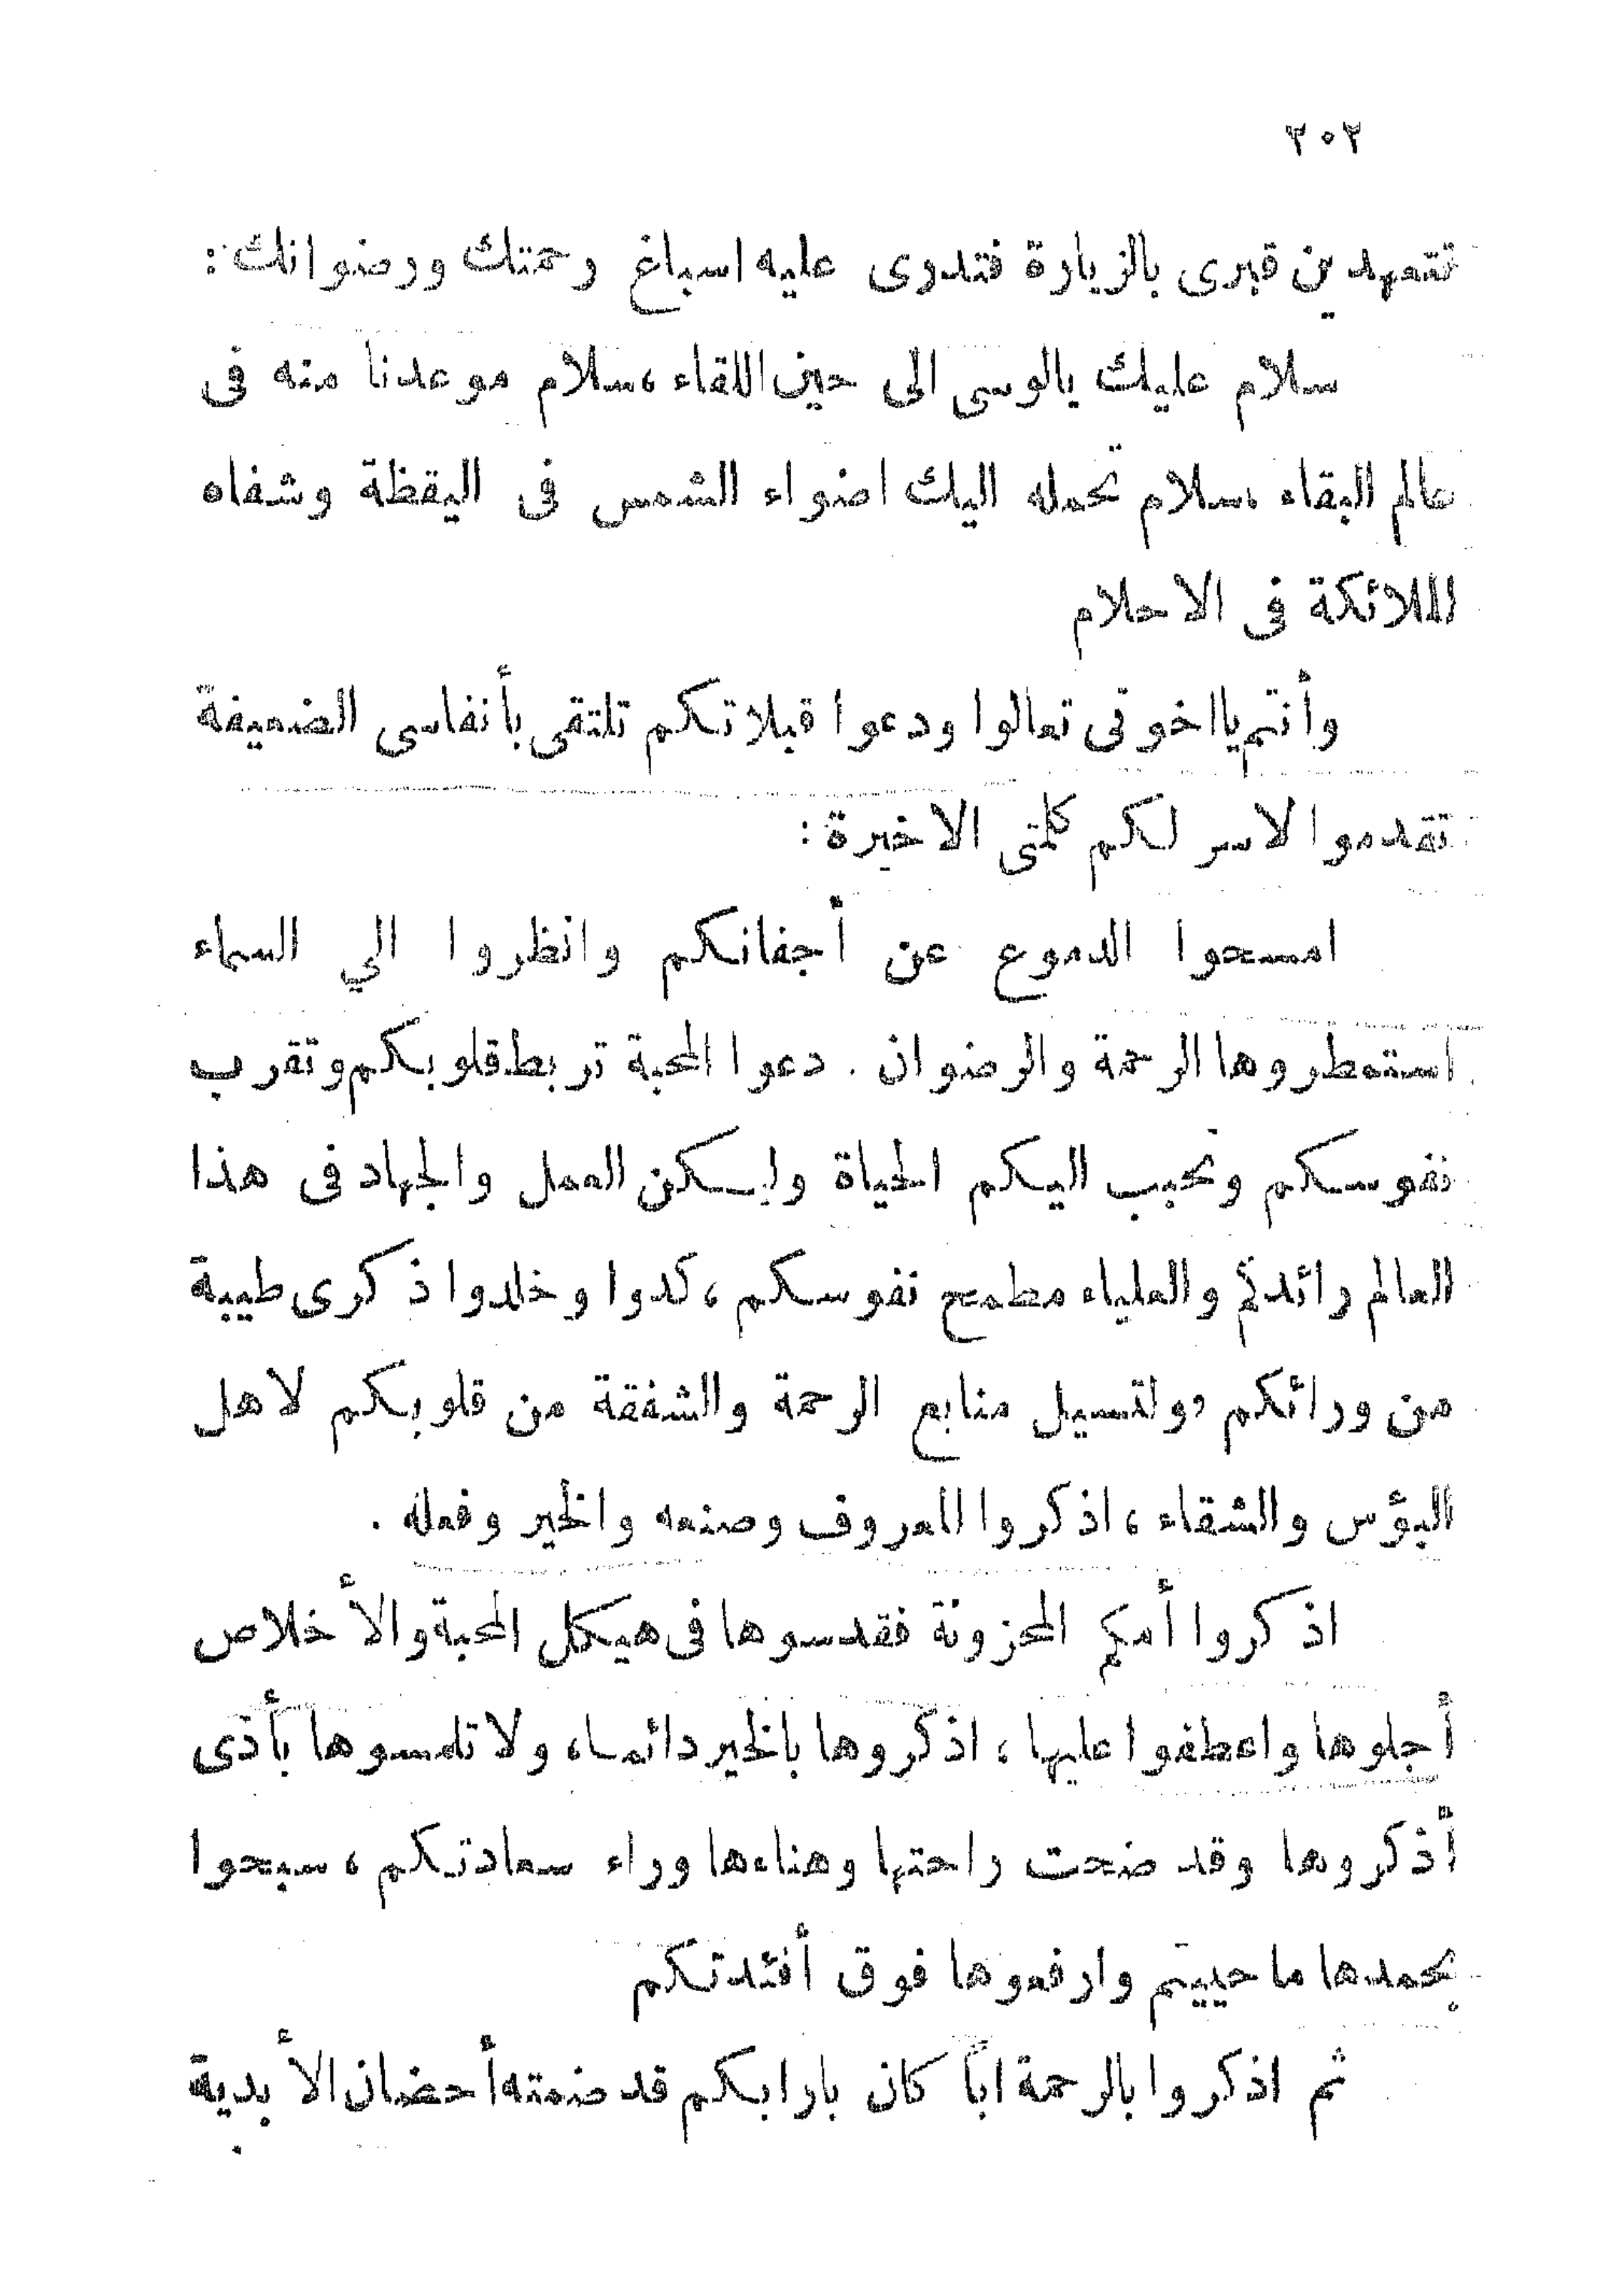 ٢٠٢
تتعهدين قبرى بالزيارة فتدوى عليه اسباغ رحمتك ورضوانك :
سلام عليك يالوسى الى حين اللقاء ، سلام موعدنا منه فى
عالم البقاء ، سلام تحمله اليك اضواء الشمس فى اليقظة وشفاه
الملائكة فى الاحلام
وأنتم يااخوتى تعالوا ودعوا قبلاتكم تلتقى بأنفاسى الضعيفة
تقدموا لاسر لكم كلمتى الاخيرة :
امسحوا الدموع عن أجفانكم وانظروا الي السماء
استمطروها الرحمة والرضوان . دعوا المحبة تربط قلوبكم وتقرب
نفوسكم وتحبب اليكم الحياة وليكن العمل والجهاد فى هذا
العالم رائدكم والعلياء مطمح نفوسكم ، كدوا وخلدوا ذكرى طيبة
من ورائكم ، ولتسيل منابع الرحمة والشفقة من قلوبكم لاهل
البؤس والشقاء ، اذكروا المعروف وصنعه والخير وفعله .
اذكروا أمكم المحزونة فقدسوها فى هيكل المحبة والأخلاص
أجلوها واعطفوا عليها ، اذكروها بالخير دائما ، ولا تلمسوها بأذى
أذكروها وقد ضحت راحتها وهناءها وراء سعادتكم ، سبحوا
بحمدها ما حييتم وارفعوها فوق أفئدتكم
ثم اذكروا بالرحمة اباً كان بارا بكم قد ضمته أحضان الأبدية